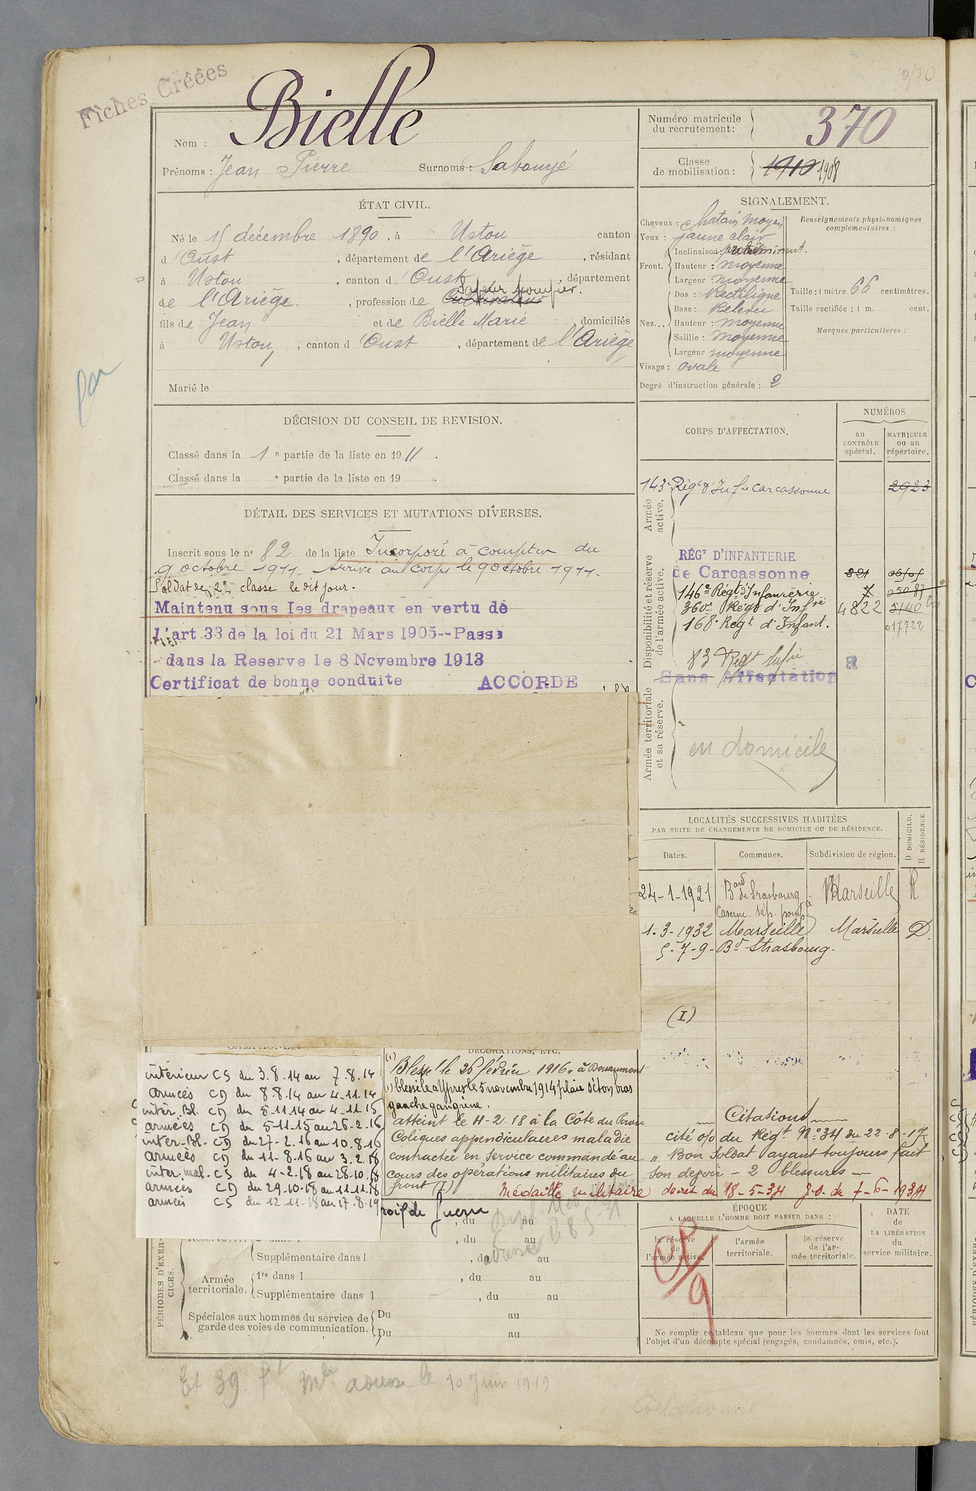 Fiches Créées
Bielle
Nom :
Prénoms : Jean Pierre Surnoms : Sabouyé
Numéro matricule du recrutement : 370
Classe de mobilisation : 1910 1908
ÉTAT CIVIL.
Né le 15 décembre 1890, à Ustou canton
d'Oust, département de l'Ariège, résidant
à Ustou, canton d'Oust, département
Sapeur pompier.
de l'Ariège, profession de Cultivateur
fils de Jean et de Bielle Marie domiciliés
à Ustou, canton d'Oust, département de l'Ariège
Marié le
SIGNALEMENT.
Cheveux : chatain moyen
Yeux : jaune clair
Front. Inclinaison :
Hauteur : moyenne
Largeur : moyenne
Nez... Dos : Rectiligne
Base : Relevée
Hauteur : moyenne
Saillie : moyenne
Largeur moyenne
Visage : ovale
Degré d'instruction générale : 2
Renseignements physionomiques complémentaires :
Taille : 1 mètre 66 centimètres.
Taille rectifiée : 1 m. cent.
Marques particulières :
DÉCISION DU CONSEIL DE REVISION.
Classé dans la 1e partie de la liste en 1911.
Classé dans la e partie de la liste en 19 .
DÉTAIL DES SERVICES ET MUTATIONS DIVERSES.
Inscrit sous le n° 82 de la liste Incorporé à compter du
9 octobre 1911. Arrivé au corps le 9 octobre 1911.
Soldat de 2e classe le dit jour.
Maintenu sous les drapeaux en vertu de
l'art 33 de la loi du 21 Mars 1905--Passé
dans la Reserve le 8 Novembre 1913
Certificat de bonne conduite ACCORDE
CORPS D'AFFECTATION.
NUMÉROS
au CONTRÔLE spécial.
MATRICULE ou au répertoire.
Armée active.
143e Régt d'Infie Carcassonne 2923
Disponibilité et réserve de l'armée active.
RÉGt D'INFANTERIE
de Carcassonne
146e Régt d'Infanterie. 7
360e Régt d'Infie 4822 5140
168e Regt d'Infant. 017722
83 Régt Infie
Sans Affectation R
Armée territoriale et sa réserve.
en domicile
LOCALITÉS SUCCESSIVES HABITÉES
PAR SUITE DE CHANGEMENTS DE DOMICILE OU DE RÉSIDENCE.
Dates. Communes. Subdivision de région. D DOMICILE. R RÉSIDENCE
24-1-1921 Bard de Strasbourg Marseille R
Caserne sap. pomp.
1-3-1932 Marseille Marseille D.
5-7-9- Bd Strasbourg.
(I)
intérieur CS du 3.8.14 au 7.8.14
armées CD du 8.8.14 au 4.11.14
intér. Bl. CD du 5.11.14 au 4-11.15
armées CD du 5-11-15 au 26-2.16
inter-Bl. CD du 27-2.16 au 10.8.16
armées CD du 11-8.16 au 3.2.18
inter.mal. CS du 4-2.18 au 28.10.18
armées CD du 29.10.18 au 11.11.18
armées CS du 12-11-18 au 17.8.19
DÉCORATIONS, ETC.
(1) Blessé le 26 février 1916 à Douaumont
(1) blessé à Ypres le 5 novembre 1914 plaie séton bras
gauche gangrène.
atteint le 4-2-18 à la Côte du Poivre
Coliques appendiculaires maladie
contractée en service commandé au
cours des opérations militaires du
front (I)
Citations
cité o/o du Régt No 34 du 22-8-17
"Bon Soldat ayant toujours fait
son devoir - 2 blessures —
Médaille militaire décret du 18-5-34 J.O. du 7-6-1934
, du au
, du au
Supplémentaire dans l , du au
Armée territoriale. 1re dans l , du au
Supplémentaire dans l , du au
Spéciales aux hommes du service de garde des voies de communication. Du au
Du au
PÉRIODES D'EXERCICES.
ÉPOQUE
A LAQUELLE L'HOMME DOIT PASSER DANS :
la réserve de l'armée active.
l'armée territoriale.
la réserve de l'armée territoriale.
DATE de LA LIBÉRATION du service militaire.
Ne remplir ce tableau que pour les hommes dont les services font
l'objet d'un décompte spécial (engagés, condamnés, omis, etc.).
10 Juin 1919